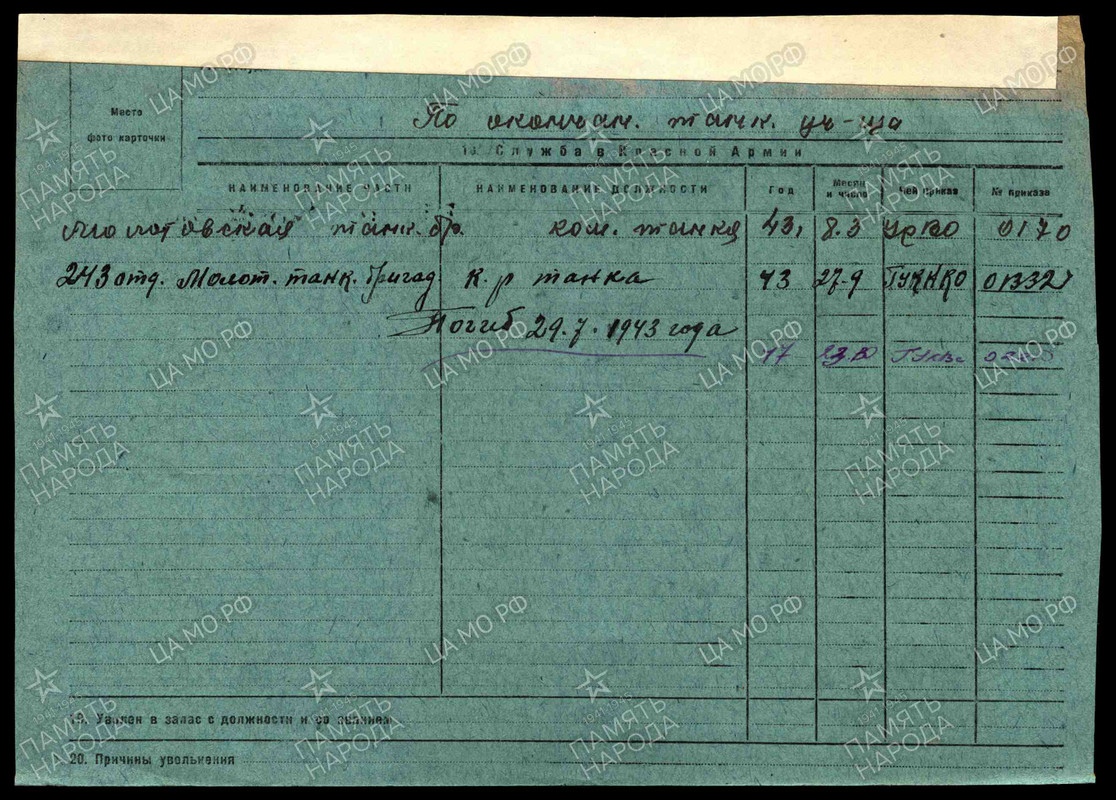 Место
фото карточки
По окончан. танк. уч-ща
Служба в Красной Армии
НАИМЕНОВАНИЕ ЧАСТИ НАИМЕНОВАНИЕ ДОЛЖНОСТИ Год Месяц и число Чей приказ № приказа
Молотовская танк. бр. ком. танка 43, 8.3 УрВО 0170
243 отд. Молот. танк. бригад. к-р танка 43 27-9 ГУКНКО 01332
Погиб 29.7.1943 года
17
19. Уволен в запас с должности и со званием
20. Причины увольнения
ЦА МО РФ
1941-1945
ПАМЯТЬ
НАРОДА